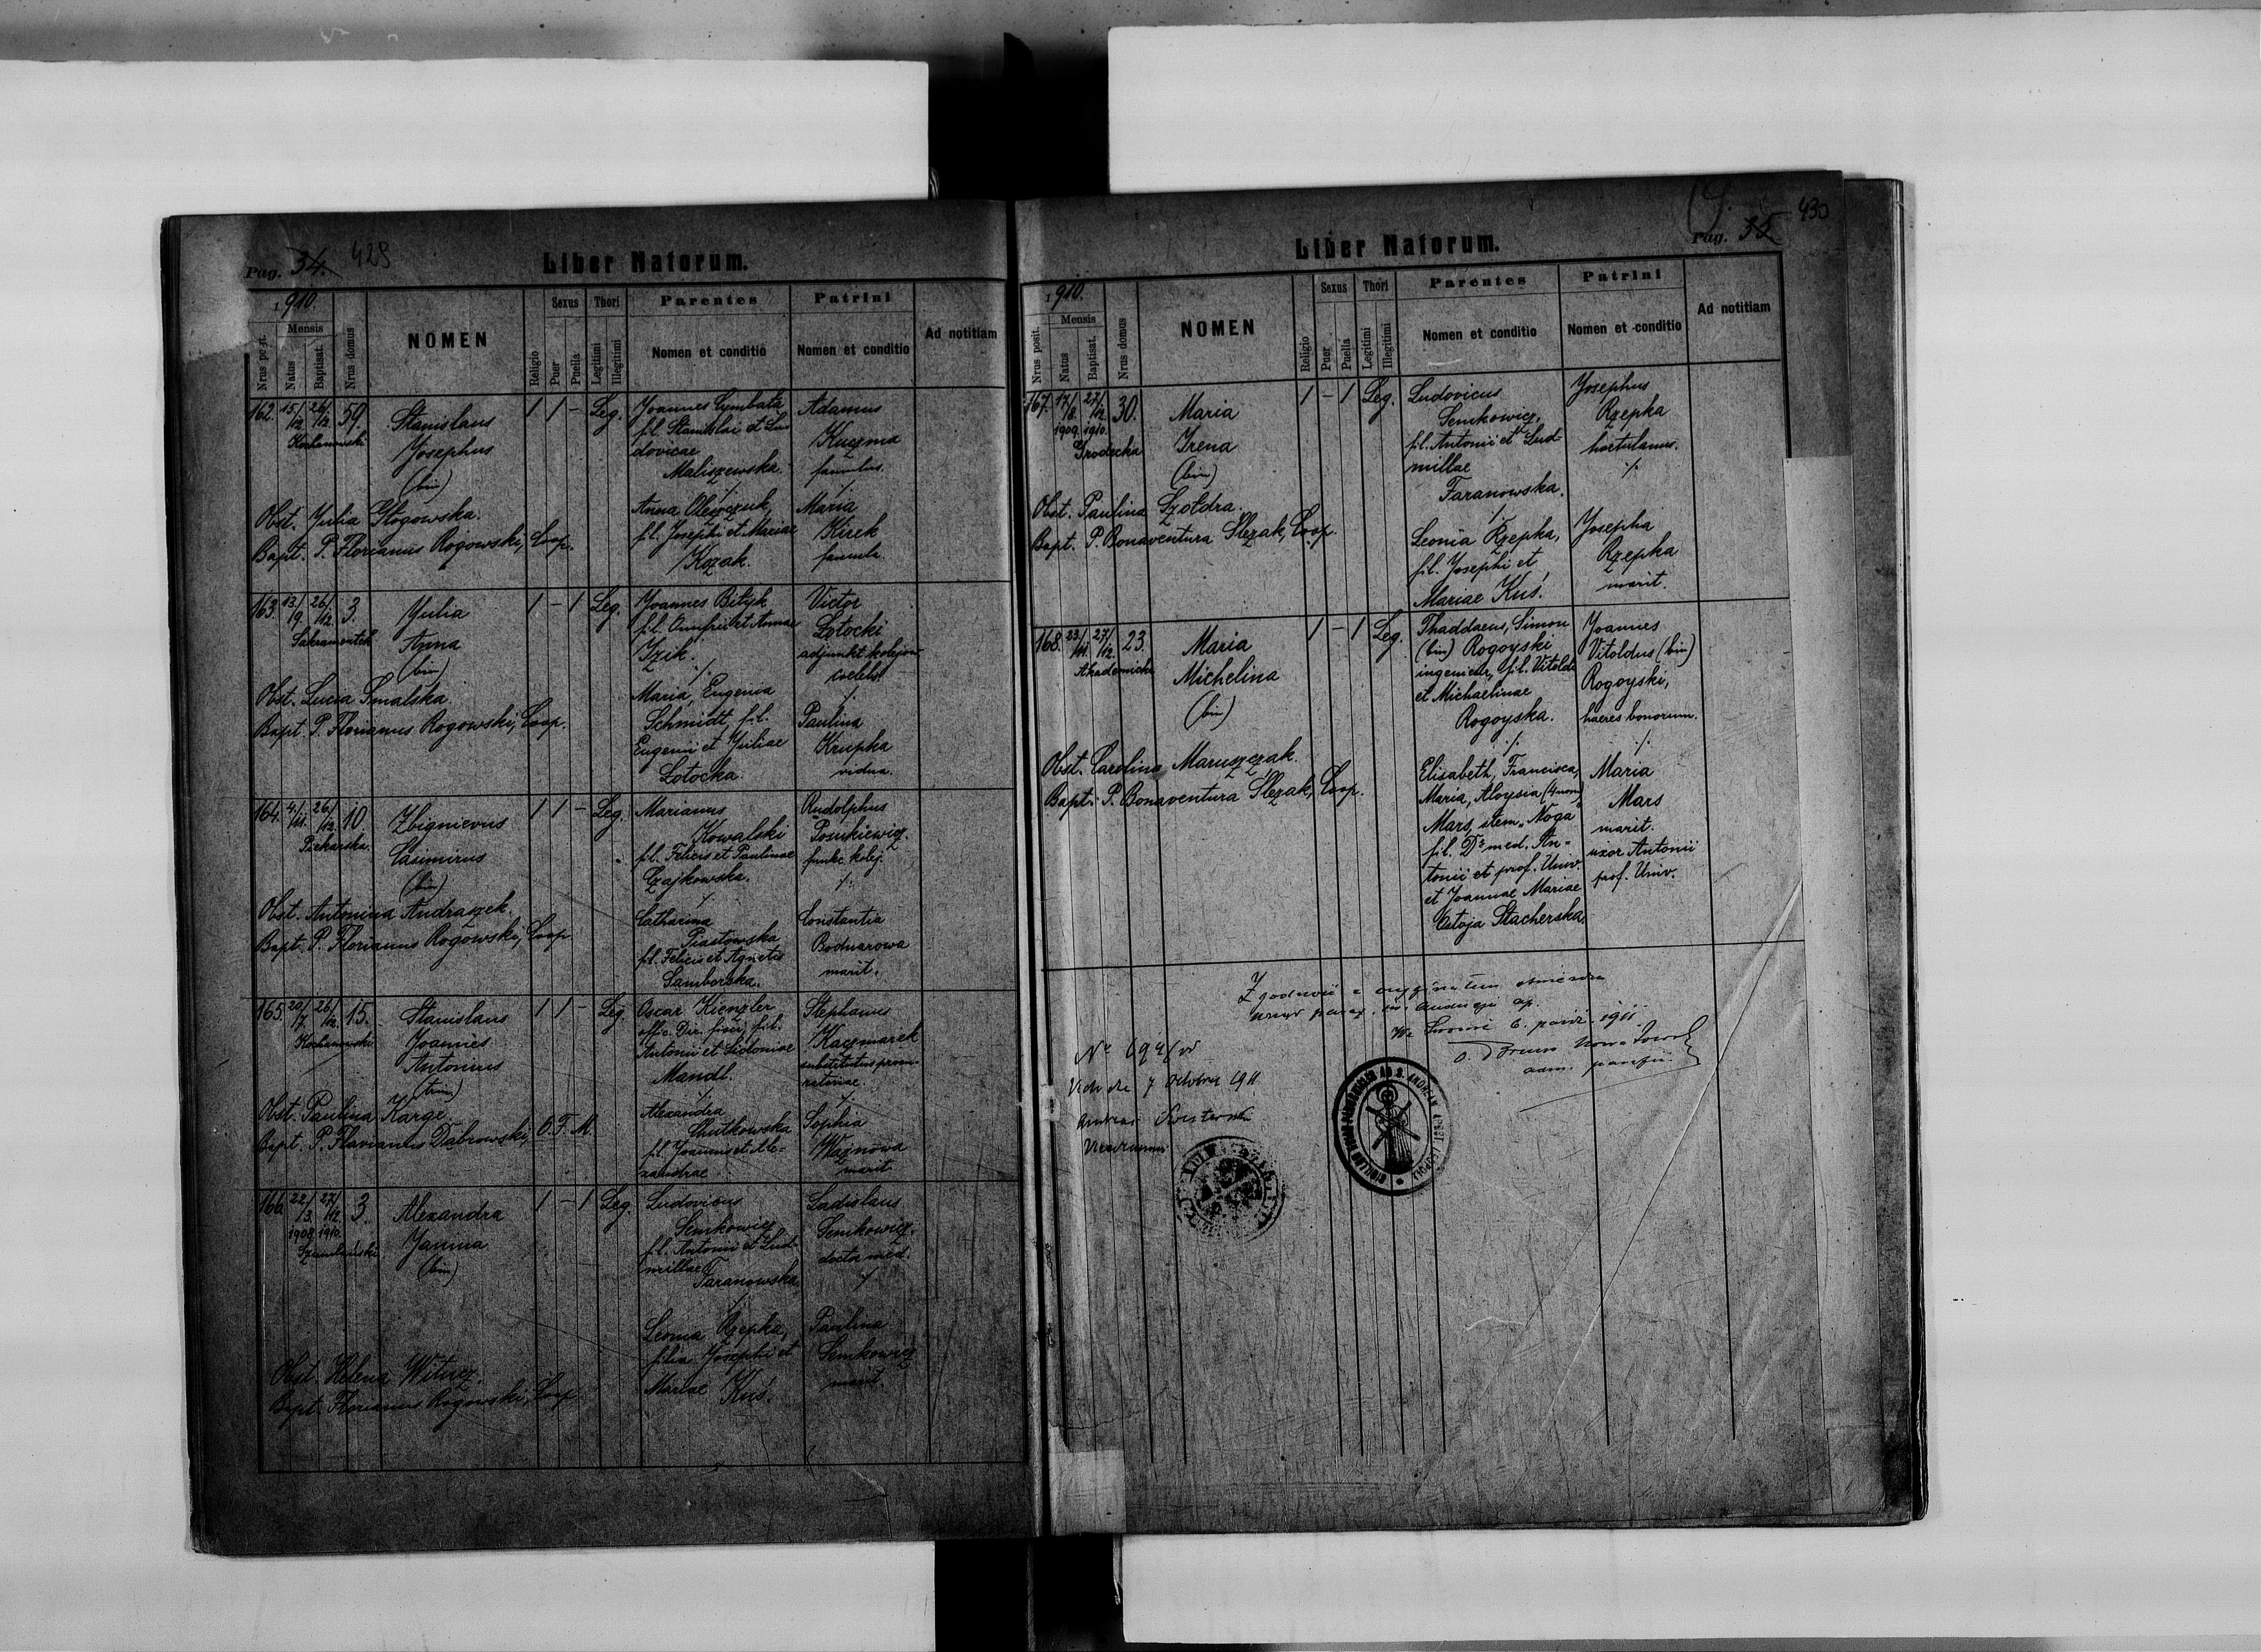 Pag. 34. 429
Liber Natorum.
1910.
Nrus posit.
Mensis
Natus
Baptisat.
Nrus domus
NOMEN
Religio
Sexus
Puer
Puella
Thori
Legitimi
Illegitimi
Parentes
Nomen et conditio
Patrini
Nomen et conditio
Ad notitiam
162. 15/12. 26/12. 59.
Kochanowski
Stanislaus
Josephus
(bin)
1 1 - Leg.
Joannes Cymbata
fil. Stanislai et Lu-
dovicae
Maliszewska.
Anna Olewczuk,
fil. Josephi et Mariae
Kozak.
Adamus
Kuczma
famulus.
Maria
Kurek
famula.
Obst. Julia Głogowska.
Bapt. P. Florianus Rogowski, Coop.
163. 13/9. 26/12. 3.
Sakramentek
Julia
Anna
(bin)
1 - 1 Leg.
Joannes Bityk
fil. Onufrii et Annae
Izik.
Maria, Eugenia
Schmidt fil.
Eugenii et Juliae
Łotocka.
Victor
Łotocki
adjunkt kolejow.
coelebs.
Paulina
Krupka
vidua.
Obst. Lucia Smalska.
Bapt. P. Florianus Rogowski, Coop.
164. 4/11. 26/12. 10.
Piekarska.
Zbignievus
Casimirus
(bin)
1 1 - Leg.
Marianus
Kowalski
fil. Felicis et Paulinae
Czajkowska.
Catharina
Piastowska
fil. Felicis et Agnetis
Samborska.
Rudolphus
funkc. kolej.
Constantia
Bodnarowa
marit.
Obst. Antonina Andraszek.
Bapt. P. Florianus Rogowski, Coop.
165. 20/7. 26/12. 15.
Kochanowski
Stanislaus
Joannes
Antonius
(trin)
1 1 - Leg.
Oscar Kienzler
offic. Dir. fin., fil.
Antonii et Sidoniae
Mandl.
Alexandra
Chutkowska
fil. Joannis et Ale-
xandrae
Stephanus
Kaczmarek
substitutus procu-
ratoriae.
Sophia
Ważnowa
marit.
Obst. Paulina Karge.
Bapt. P. Flavianus Dąbrowski, O. F. M.
166. 22/3. 27/12. 3.
1908. 1910.
Alexandra
Janina
(bin)
1 - 1 Leg.
Ludovicus
Semkowicz
fil. Antonii et Lud-
millae
Taranowska.
Leonia Rzepka,
filia Josephi et
Mariae Kuś.
Ladislaus
Semkowicz,
Paulina
Semkowicz
marit.
Obst. Helena Witurz.
Bapt. Florianus Rogowski, Coop.
Pag. 35 430
Liber Natorum.
1910.
Nrus posit.
Mensis
Natus
Baptisat.
Nrus domus
NOMEN
Religio
Sexus
Puer
Puella
Thori
Legitimi
Illegitimi
Parentes
Nomen et conditio
Patrini
Nomen et conditio
Ad notitiam
167. 17/8. 27/12. 30.
1909. 1910.
Grodecka
Maria
Irena
(bin)
1 - 1 Leg.
Ludovicus
Semkowicz,
fil. Antonii et Lud-
millae
Taranowska.
Leonia Rzepka,
fil. Josephi et
Mariae Kuś.
Josephus
Rzepka
hortulanus.
Josepha
Rzepka
marit.
Obst. Paulina Szołdra.
Bapt. P. Bonaventura Ślezak, Coop.
168. 23/11. 27/12. 23.
Akademicka
Maria
Michelina
(bin)
1 - 1 Leg.
Thaddaeus, Simon
(bin) Rogoyski
ingenieur, fil. Vitoldi
et Michaelinae
Rogoyska.
Elisabeth, Francisca,
Maria, Aloysia (4 nom)
Mars, stem. "Noga"
fil. Dr. med. An-
tonii et prof. Univ.
et Joannae Mariae
Ostoja Stacherska.
Joannes
Vitoldus (bin)
Rogoyski,
haeres bonorum.
Maria
Mars
marit.
uxor Antonii
prof. Univ.
Obst. Carolina Maruszczak.
Bapt. P. Bonaventura Ślezak, Coop.
We Lwowie 6. paźdz. 1911.
7 Octobris 1911